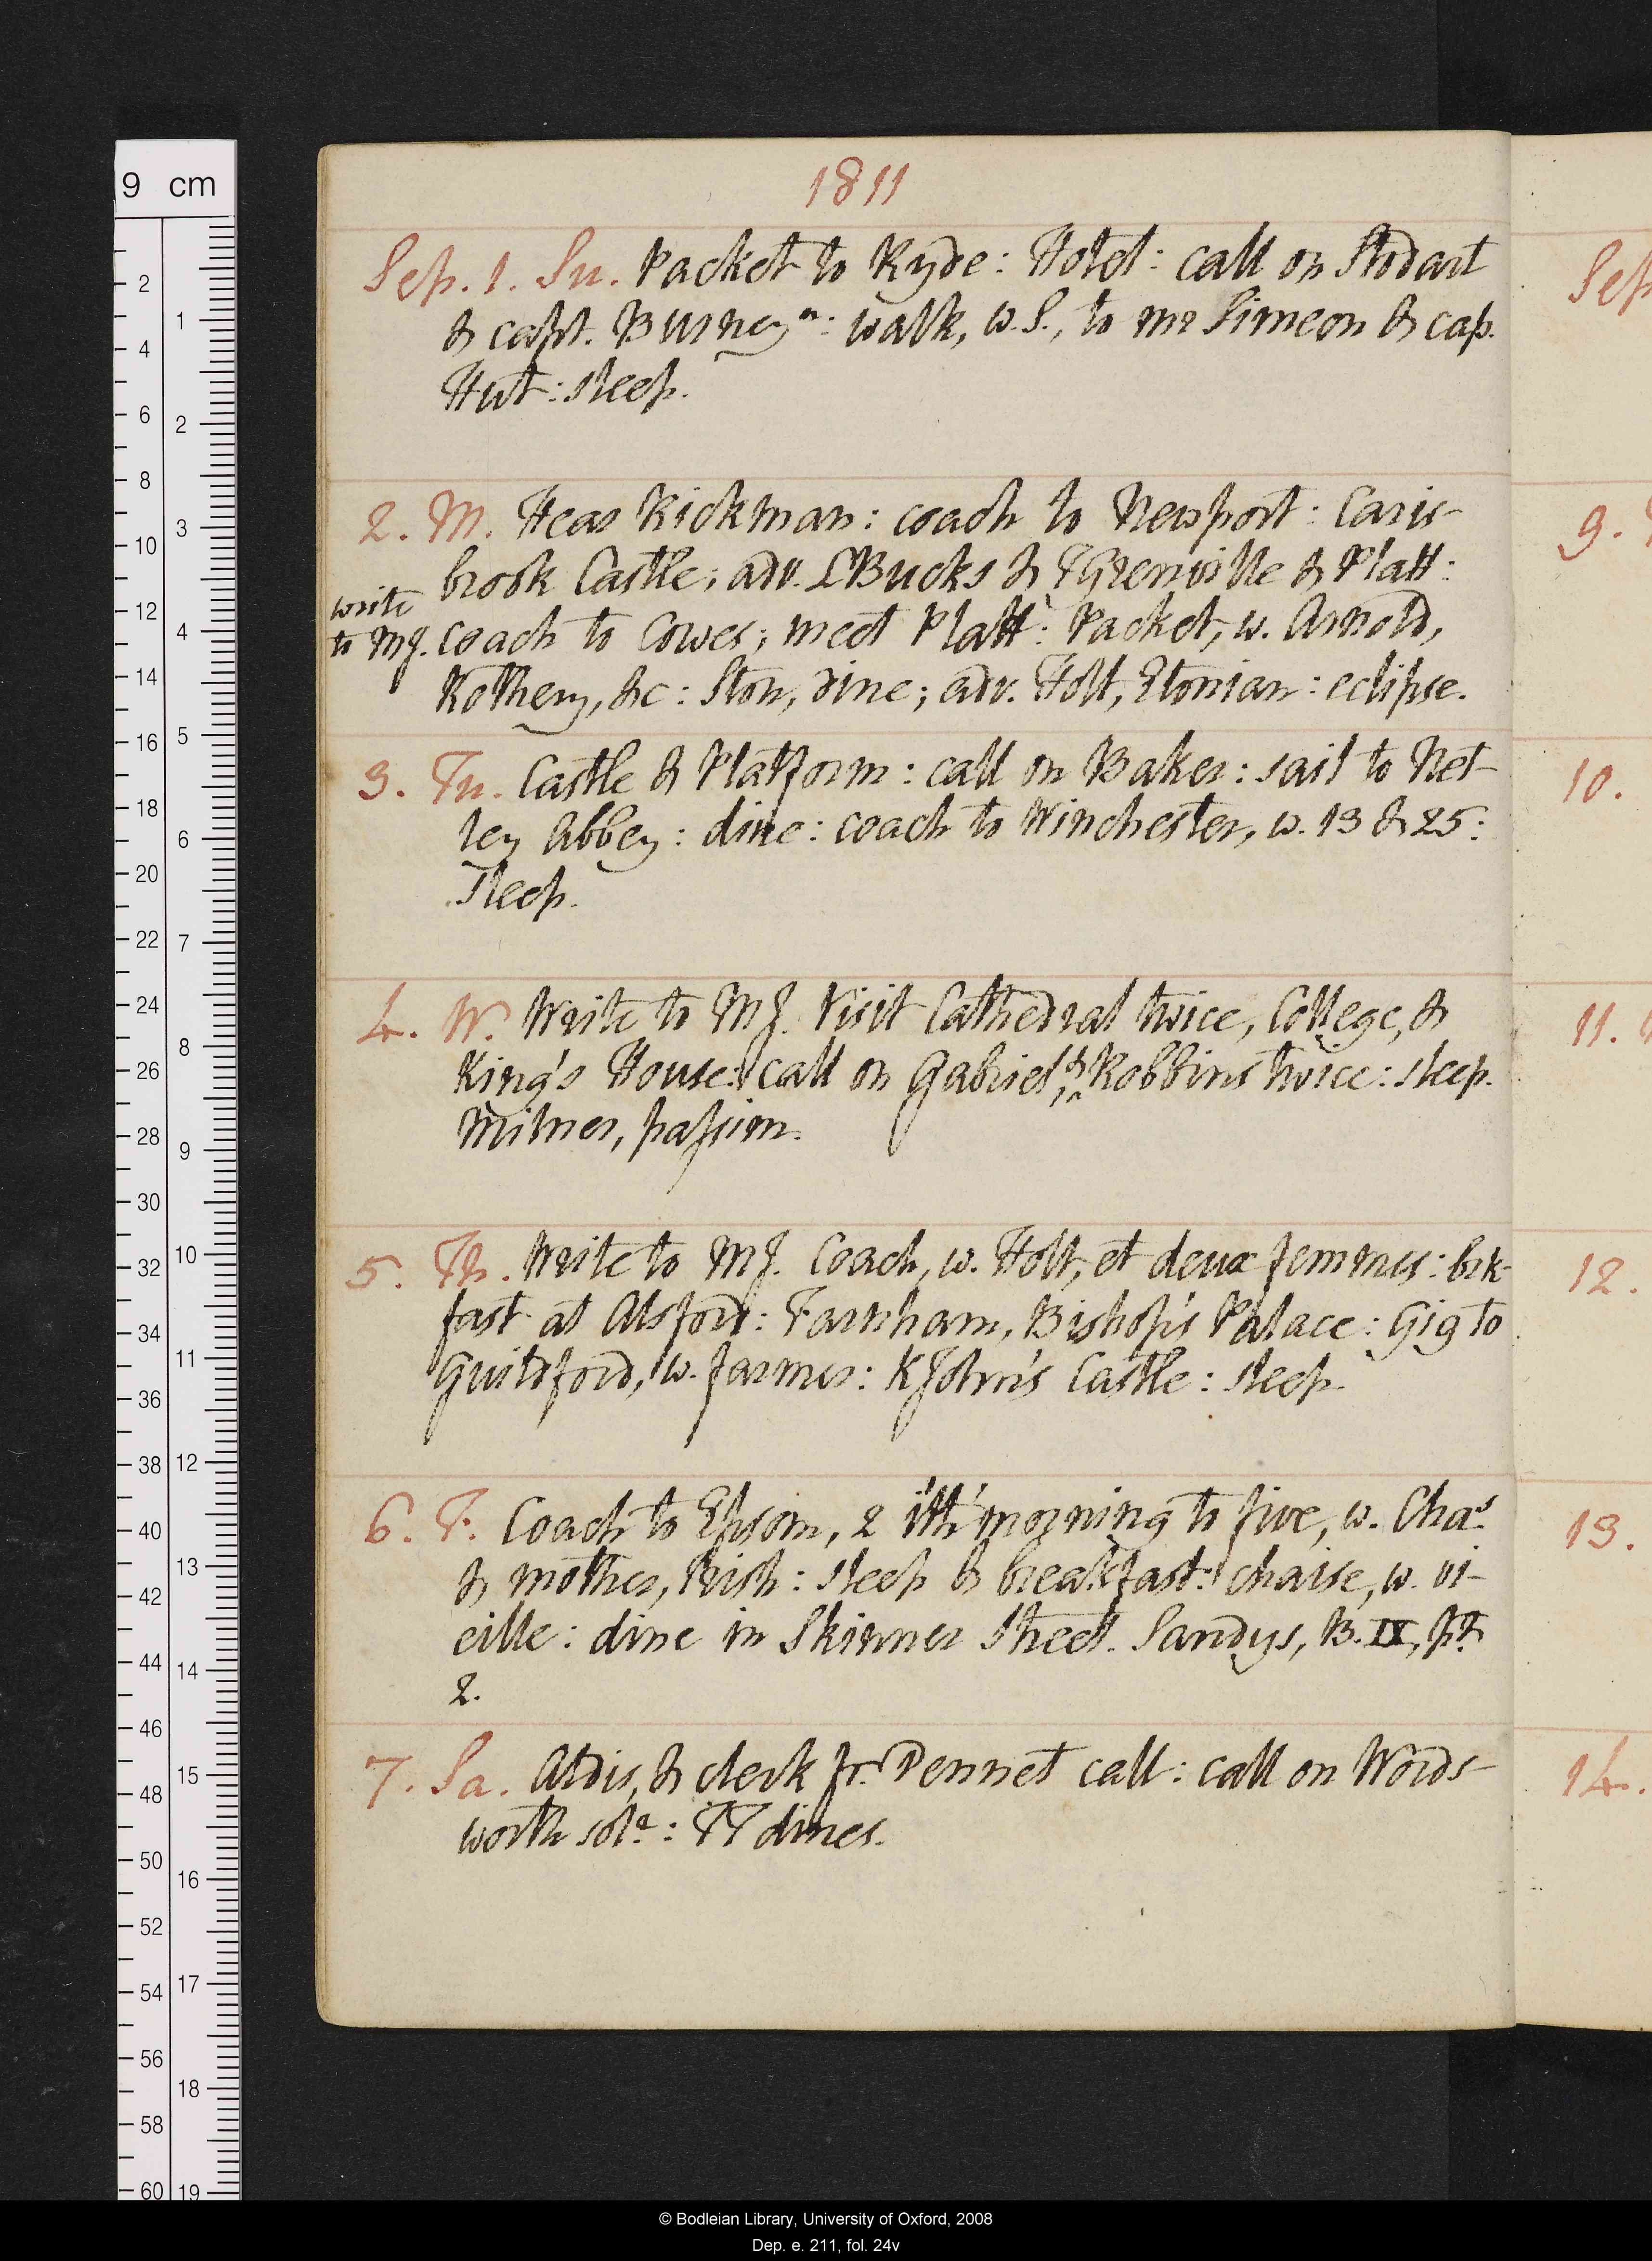 1811
Sep. 1. Su. Packet to Ryde: Hotel: call on Stodart
& capt. Burney n: walk, w. S., to mr Simeon & cap.
Hut: sleep.
2. M. Hear Rickman: coach to Newport: Caris-
brook Castle; adv. LBucks & TGrenville & Platt:
write
to MJ. coach to Cowes; meet Platt: Packet, w. Arnold,
Rothery, &c: Ston, dine; adv. Holt, Etonian: eclipse.
3. Tu. Castle & Platform: call on Baker: sail to Net-
ley Abbey: dine: coach to Winchester, w. 13 & 25:
sleep.
4. W. Write to MJ. Visit Cathedral twice, College, &
King's House: call on Gabriel, & Robbins twice: sleep.
Milner, passim.
5. Th. Write to MJ. Coach, w. Holt, et deux femmes: brk-
fast at Alsford: Farnham, Bishop's Palace: Gig to
Guildford, w. farmer: KJohn's Castle: sleep.
6. F. Coach to Epsom, 2 i'th' morning to five, w. Chas
& mother, Irish: sleep & breakfast: chaise, w. vi-
eille: dine in Skinner Street. Sandys, B. IX, pt
2.
7. Sa. Aldis, & clerk fr. Pennet call: call on Words-
worth sola: TT dines.
Sep
9.
10.
11.
12.
13.
14.
9 cm
2
4
6
8
10
12
14
16
18
20
22
24
26
28
30
32
34
36
38
40
42
44
46
48
50
52
54
56
58
60
1
2
3
4
5
6
7
8
9
10
11
12
13
14
15
16
17
18
19
© Bodleian Library, University of Oxford, 2008
Dep. e. 211, fol. 24v